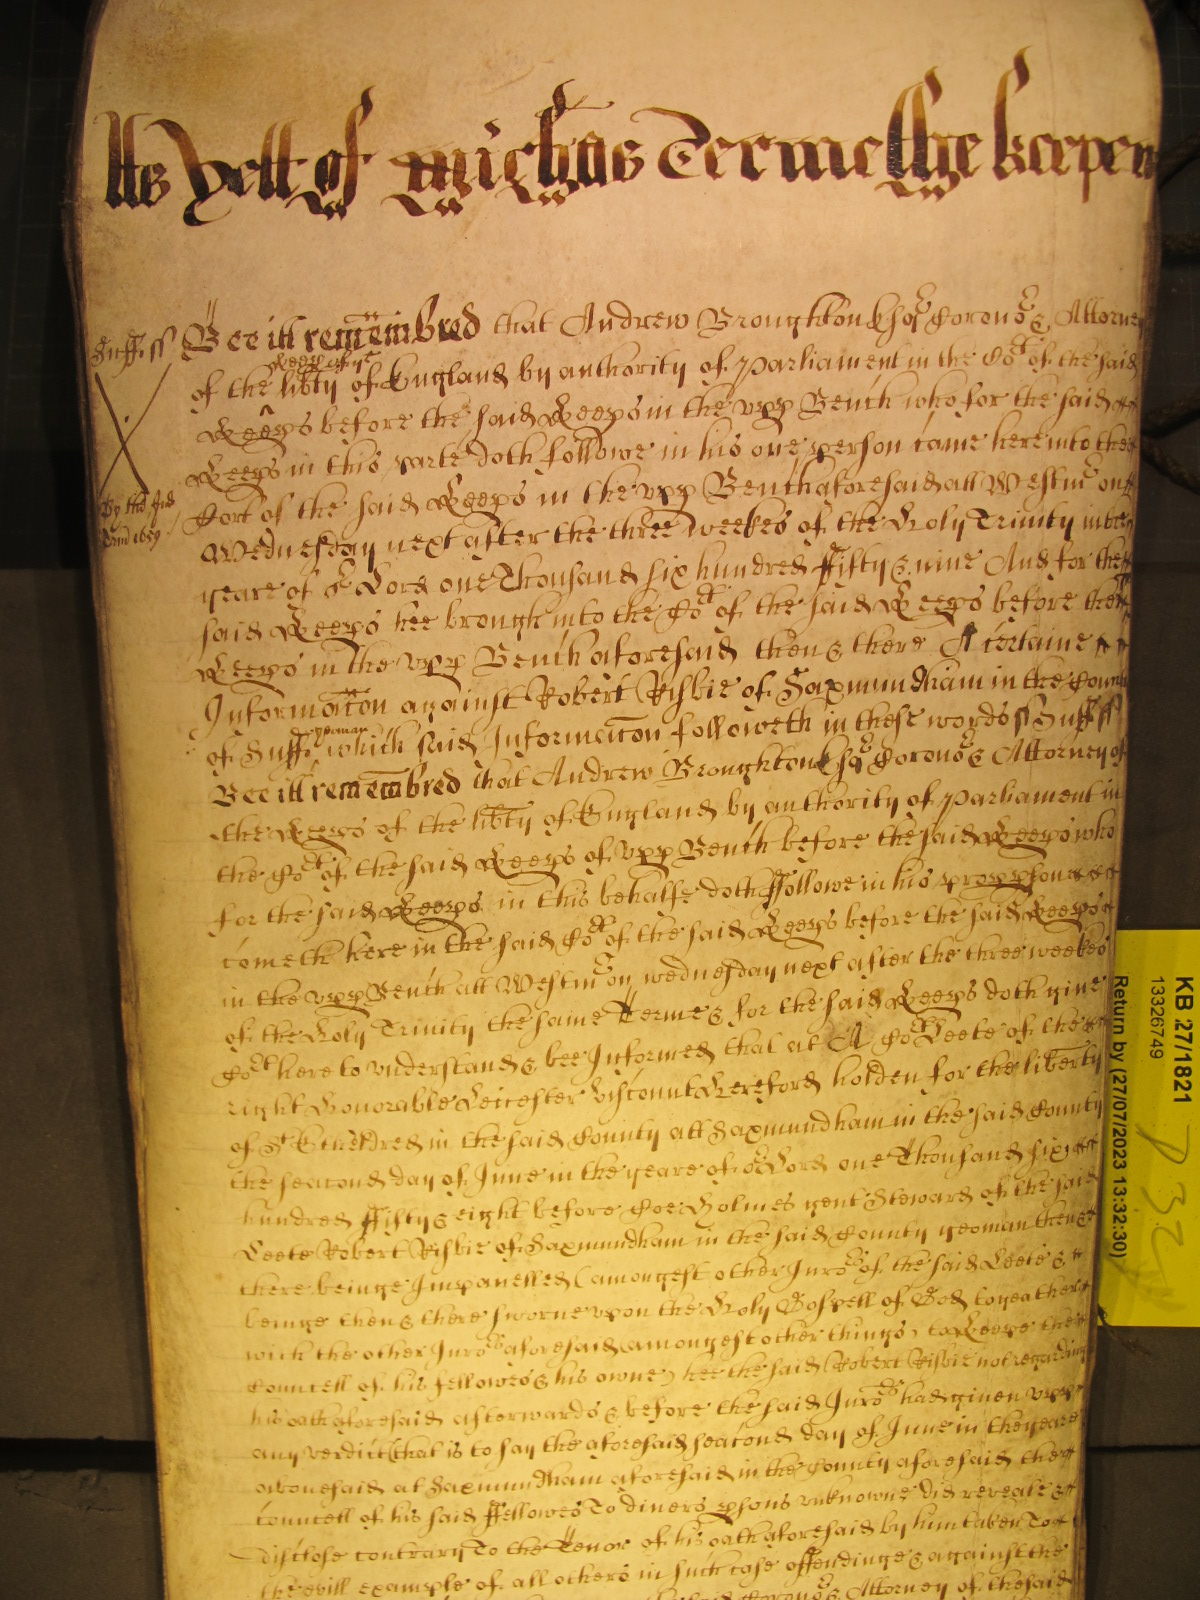 As Yett of Michas Terme the keepers
Suff ss
Bee itt remembred that Andrew Broughton Esqr Coronor & Attorney
Keeps of ye
of the libty of England by authority of Parliament in the Cort of the said
Keeps before the said Keeps in the vpp Bench who for the said
Keeps in this parte doth followe in his one person came here into the
Cort of the said Keeps in the vpp Bench aforesaid att Westmr on
Wednesday next after the three weekes of the Holy Trinity in the
yeare of or Lord one Thousand six hundred ffifty & nine And for the
said Keeps hee brough into the Cort of the said Keeps before the
Keeps in the vpp Bench aforesaid then & there A certaine
Informacon against Robert Risbie of Saxmundham in the County
yeoman
of Suff which said Informacon followeth in these words ss Suff ss
Bee itt remembred that Andrew Broughton Esqr Coronor & Attorney of
the Keeps of the libty of England by authority of Parliament in
the Cort of the said Keeps of vpp Bench before the said Keeps who
for the said Keeps in this behalfe doth ffollowe in his propp person
cometh here in the said Cort of the said Keeps before the said Keeps
in the vpp Bench att Westmr on wednesday next after the three weekes
of the Holy Trinity the same Terme & for the said Keeps doth give
Cort here to vnderstand & bee Informed that at A Cort Leete of the
right Honorable Leicester Viscount Hereford holden for the liberty
of St Etheldred in the said County att Saxmundham in the said County
the seacond day of June in the yeare of or Lord one Thousand six
hundred ffifty & eight before Holmes gent Steward of the said
Leete Robert Risbie of Saxmundham in the said County yeoman then &
there beinge Impanelled (amongest other Juror of the said Leete &
beinge then & there sworne vpon the Holy Gospell of God togeather
with the other Jurors aforesaid amongest other things, to Keepe the
Councell of his fellowes & his owne) hee the said Robert Risbie not regarding
his oath aforesaid afterwards & before the said Jurors had given vpp
any verdict (that is to say the aforesaid seacond day of June in the yeare
abovesaid at Saxmundham aforesaid in the County aforesaid the
Councell of his said ffellowes To divers psons vnknowne did reveale &
disclose contrary To the Tenor of his oath aforesaid by him taken To
the evill example of all others in such case offendinge & against the
Coronor & Attorney of the said
By the
Trin 1659
KB 27/1821
13326749
Return by (27/07/2023 13:32:30)